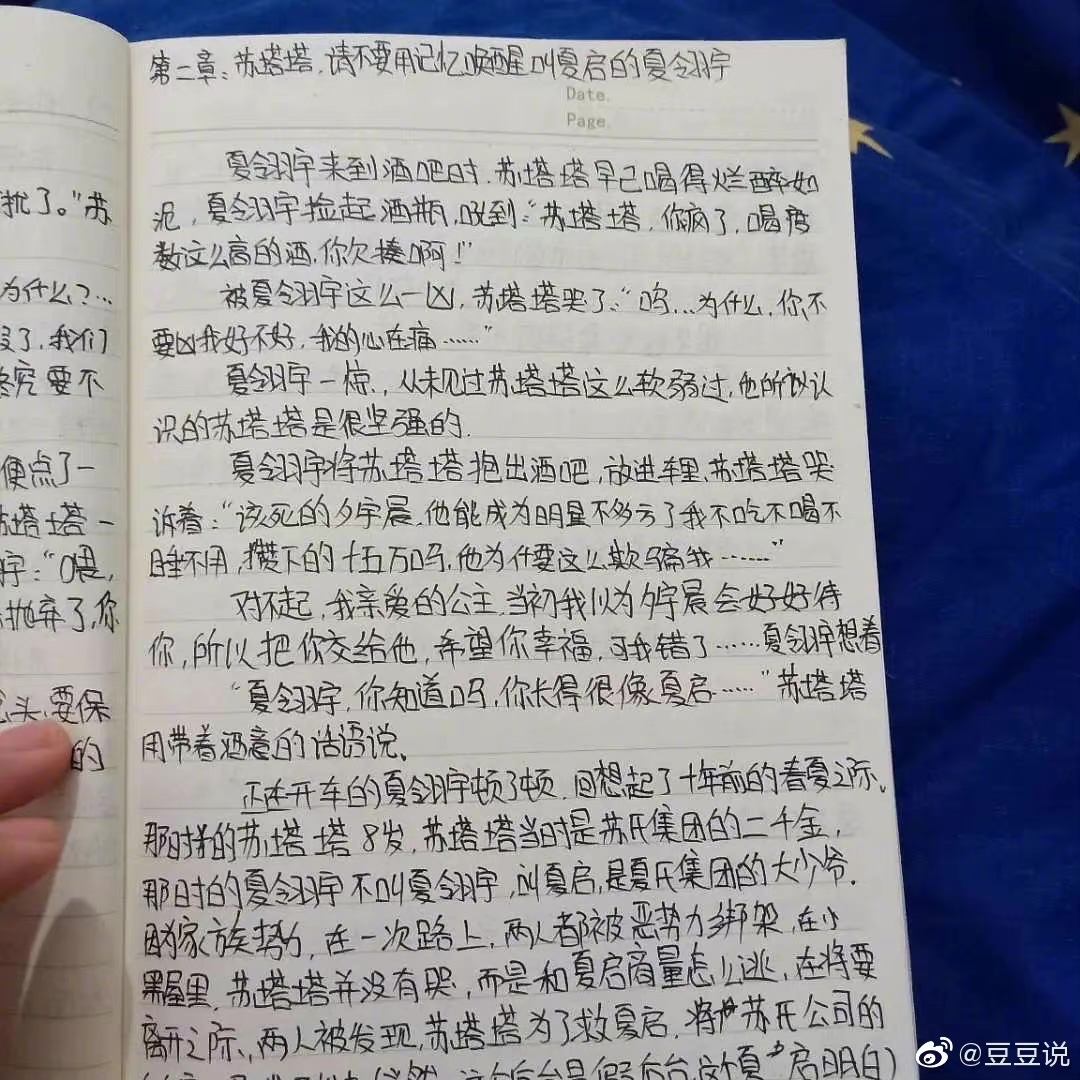 第二章：苏塔塔，请不要用记忆唤醒叫夏启的夏翎羽宇
Date.
Page.
夏翎羽宇来到酒吧时，苏塔塔早已喝得烂醉如
泥，夏翎羽宇捡起酒瓶，说到：“苏塔塔，你疯了，喝度
数这么高的酒，你欠揍啊！”
被夏翎羽宇这么一凶，苏塔塔哭了：“呜…为什么，你不
要凶我好不好，我的心在痛……”
夏翎羽宇一惊，从未见过苏塔塔这么软弱过，他所以认
识的苏塔塔是很坚强的.
夏翎羽宇将苏塔塔抱出酒吧，放进车里，苏塔塔哭
诉着：“该死的夕宇晨，他能成为明星不多亏了我不吃不喝不
睡不用，攒下的十五万吗，他为什要这么欺骗我……”
对不起，我亲爱的公主，当初我以为夕宇晨会好好待
你，所以把你交给他，希望你幸福，可我错了……夏翎羽宇想着
“夏翎羽宇，你知道吗，你长得很像夏启……”苏塔塔
用带着酒意的话语说、
正在开车的夏翎羽宇顿了顿，回想起了十年前的春夏之际。
那时的苏塔塔8岁，苏塔塔当时是苏氏集团的二千金，
那时的夏翎羽宇不叫夏翎羽宇，叫夏启，是夏氏集团的大少爷.
因为家族势力，在一次路上，两人都被恶势力绑架，在小
黑屋里，苏塔塔并没有哭，而是和夏启商量怎么逃，在将要
离开之际、，两人被发现，苏塔塔为了救夏启，将苏氏公司的
后台是假后台，这个夏启明白）
扰了。”苏
为什么？…
没了，我们
终究要不
便点了一
苏塔塔一
宇：“喂，
抛弃了，你
头，要保
的
@豆豆说